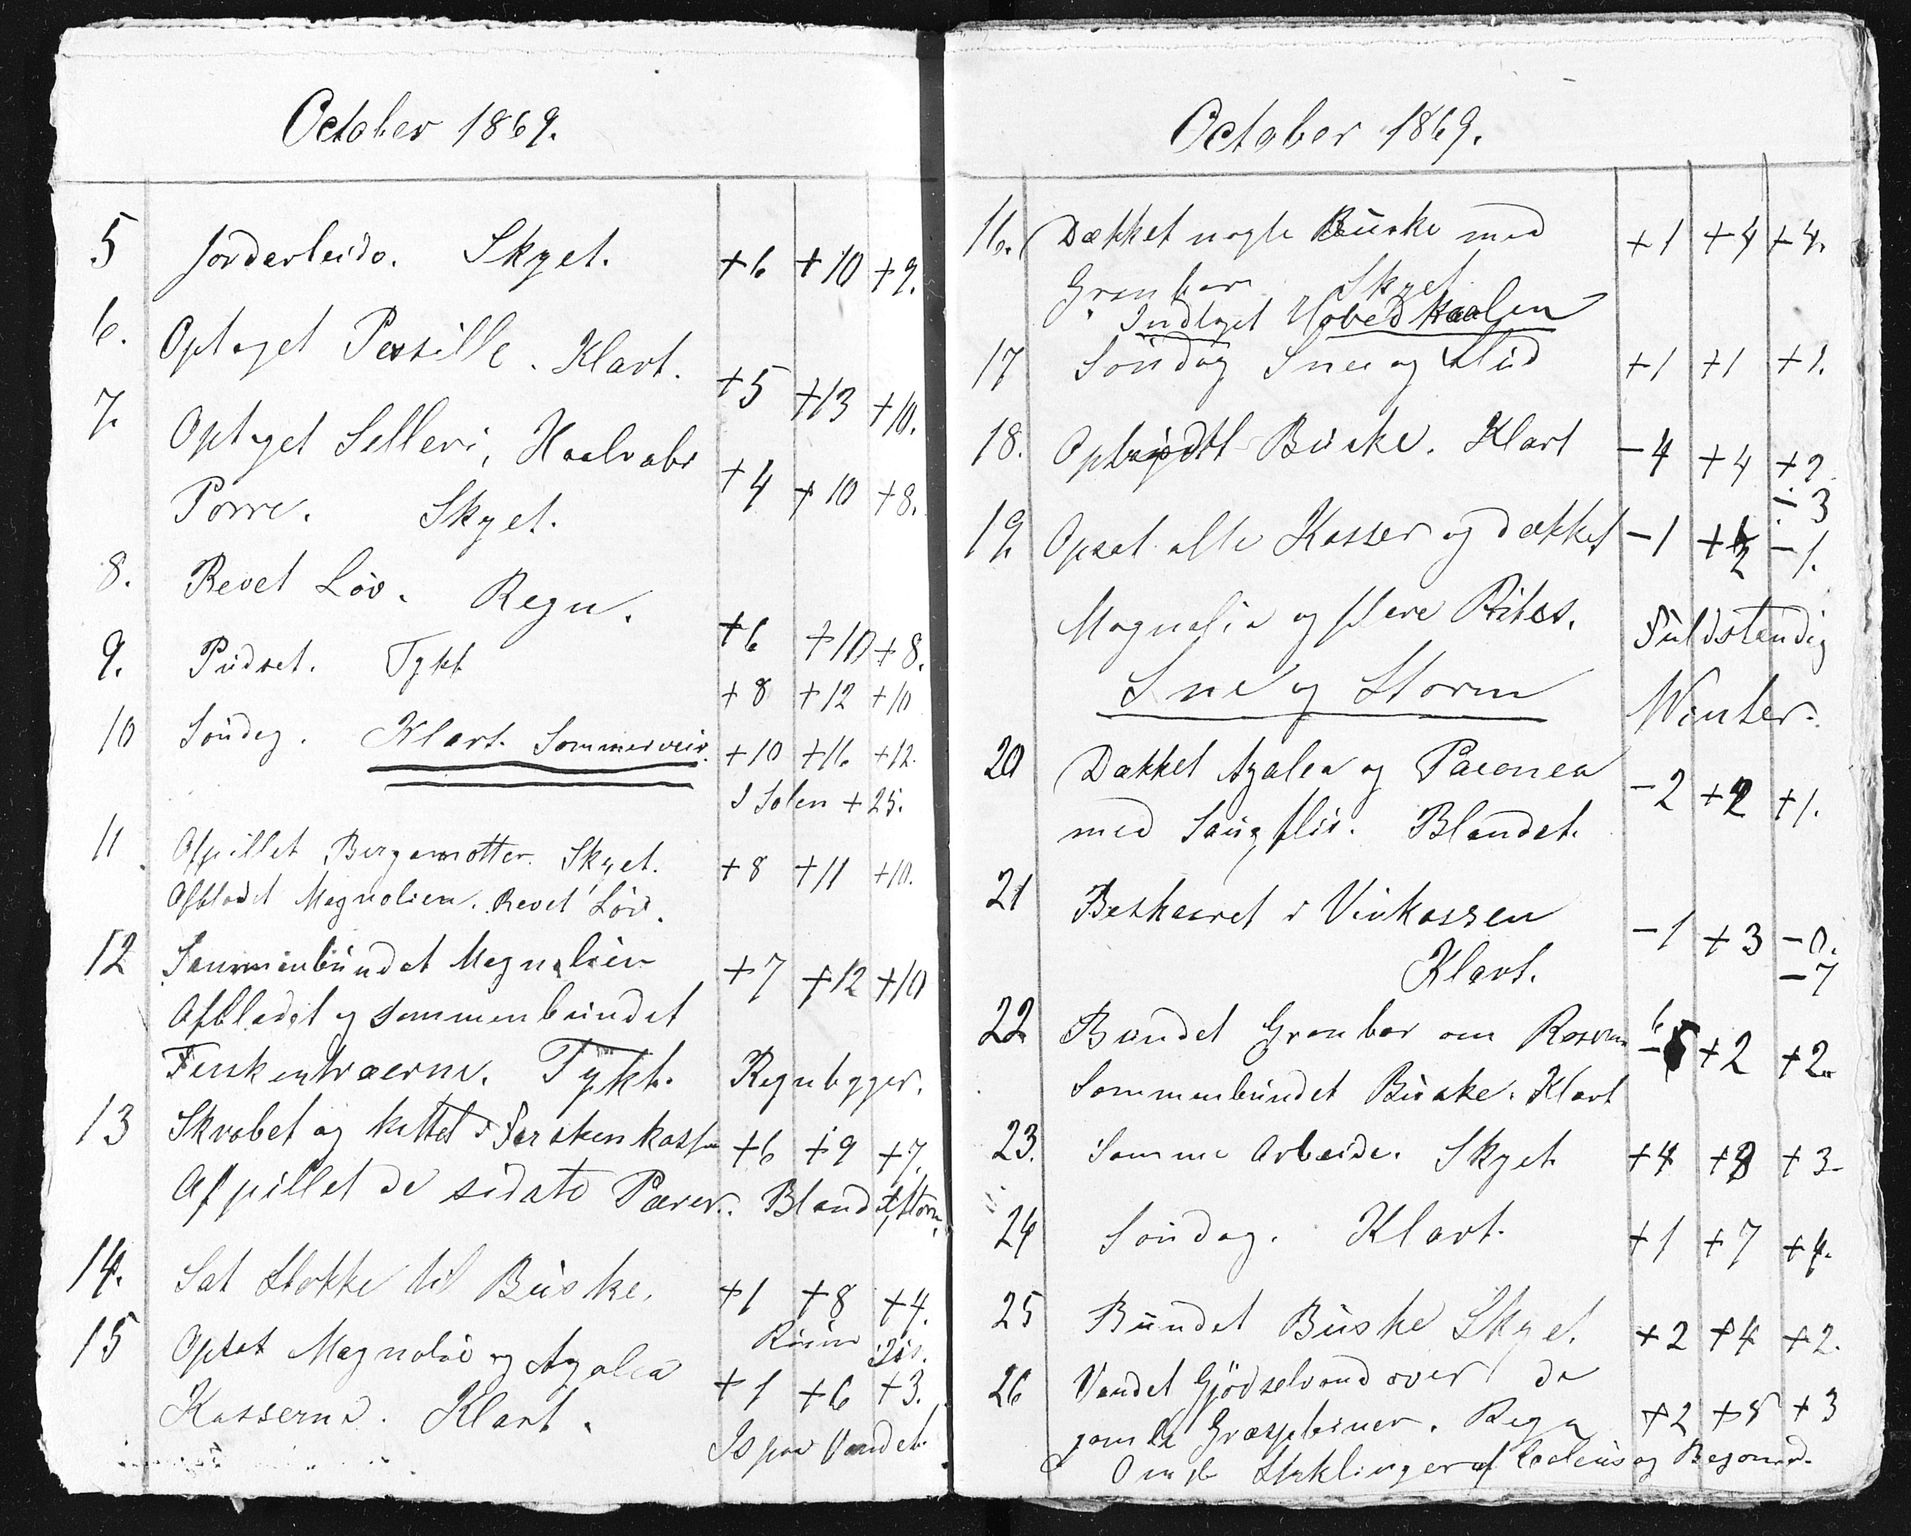 October 1869.
5 Jorderbeide. Skyet. +6 +10 +9.
6. Optaget Persille. Klart. +5 +13 +10.
7. Optaget Selleri, Kaalrabi +4 +10 +8.
Porre. Skyet.
8. Revet Löv. Regn. +6 +10 +8.
9. Pudset. Tykt +8 +12 +10
10 Söndag. Klart. Sommerveir. +10 +16 +12.
I Solen +25.
11 Afpillet Bergamotter. Skyet. +8 +11 +10.
Afbladet Magnolien. Revet Löv.
12 Sammenbundet Magnolien +7 +12 +10
Afbladet og sammenbundet
Ferskentræerne. Tykt. Regnbyger.
13 Skrabet og kittet i Ferskenkassen +6 +9 +7.
Afpillet de sidste Pærer. Blandet, Storm.
14. Sat Stokke til Buske. +1 +8 +4.
Riim Iis.
15 Opsat Magnolie og Azalea +1 +6 +3.
Kasserne. Klart. Is paa Vandet.
October 1869.
16. Dækket nogle Buske med +1 +4 +4.
Granbar Skyet
Indlagt Hovedkaalen
17 Söndag Snee og Slud +1 +1 +1.
18. Opbundt Buske. Klart -4 +4 +2
-3
19. Opsat alle Kasser og dækket -1 +2 -1.
Magnolia og flere Ribes. Fuldstendig
Sne og Storm Winter.
20 Dækket Azalea og Paeonea -2 +2 +1.
med Saugfliis. Blandet.
21 Beskaaret i Vinkassen -1 +3 -0.
Klart. -7
22 Bundet Granbar om Roserne -6 +2 +2.
Sammenbundet Buske. Klart
23. Samme Arbeide. Skyet +4 +8 +3.
24 Söndag. Klart. +1 +7 +4.
25 Bundet Buske Skyet. +2 +4 +2.
26 Vandet Gjödselvand over de +2 +8 +3
gamle Græsplæner. Regn
Omsat Stiklinger af Coleus og Begonia.